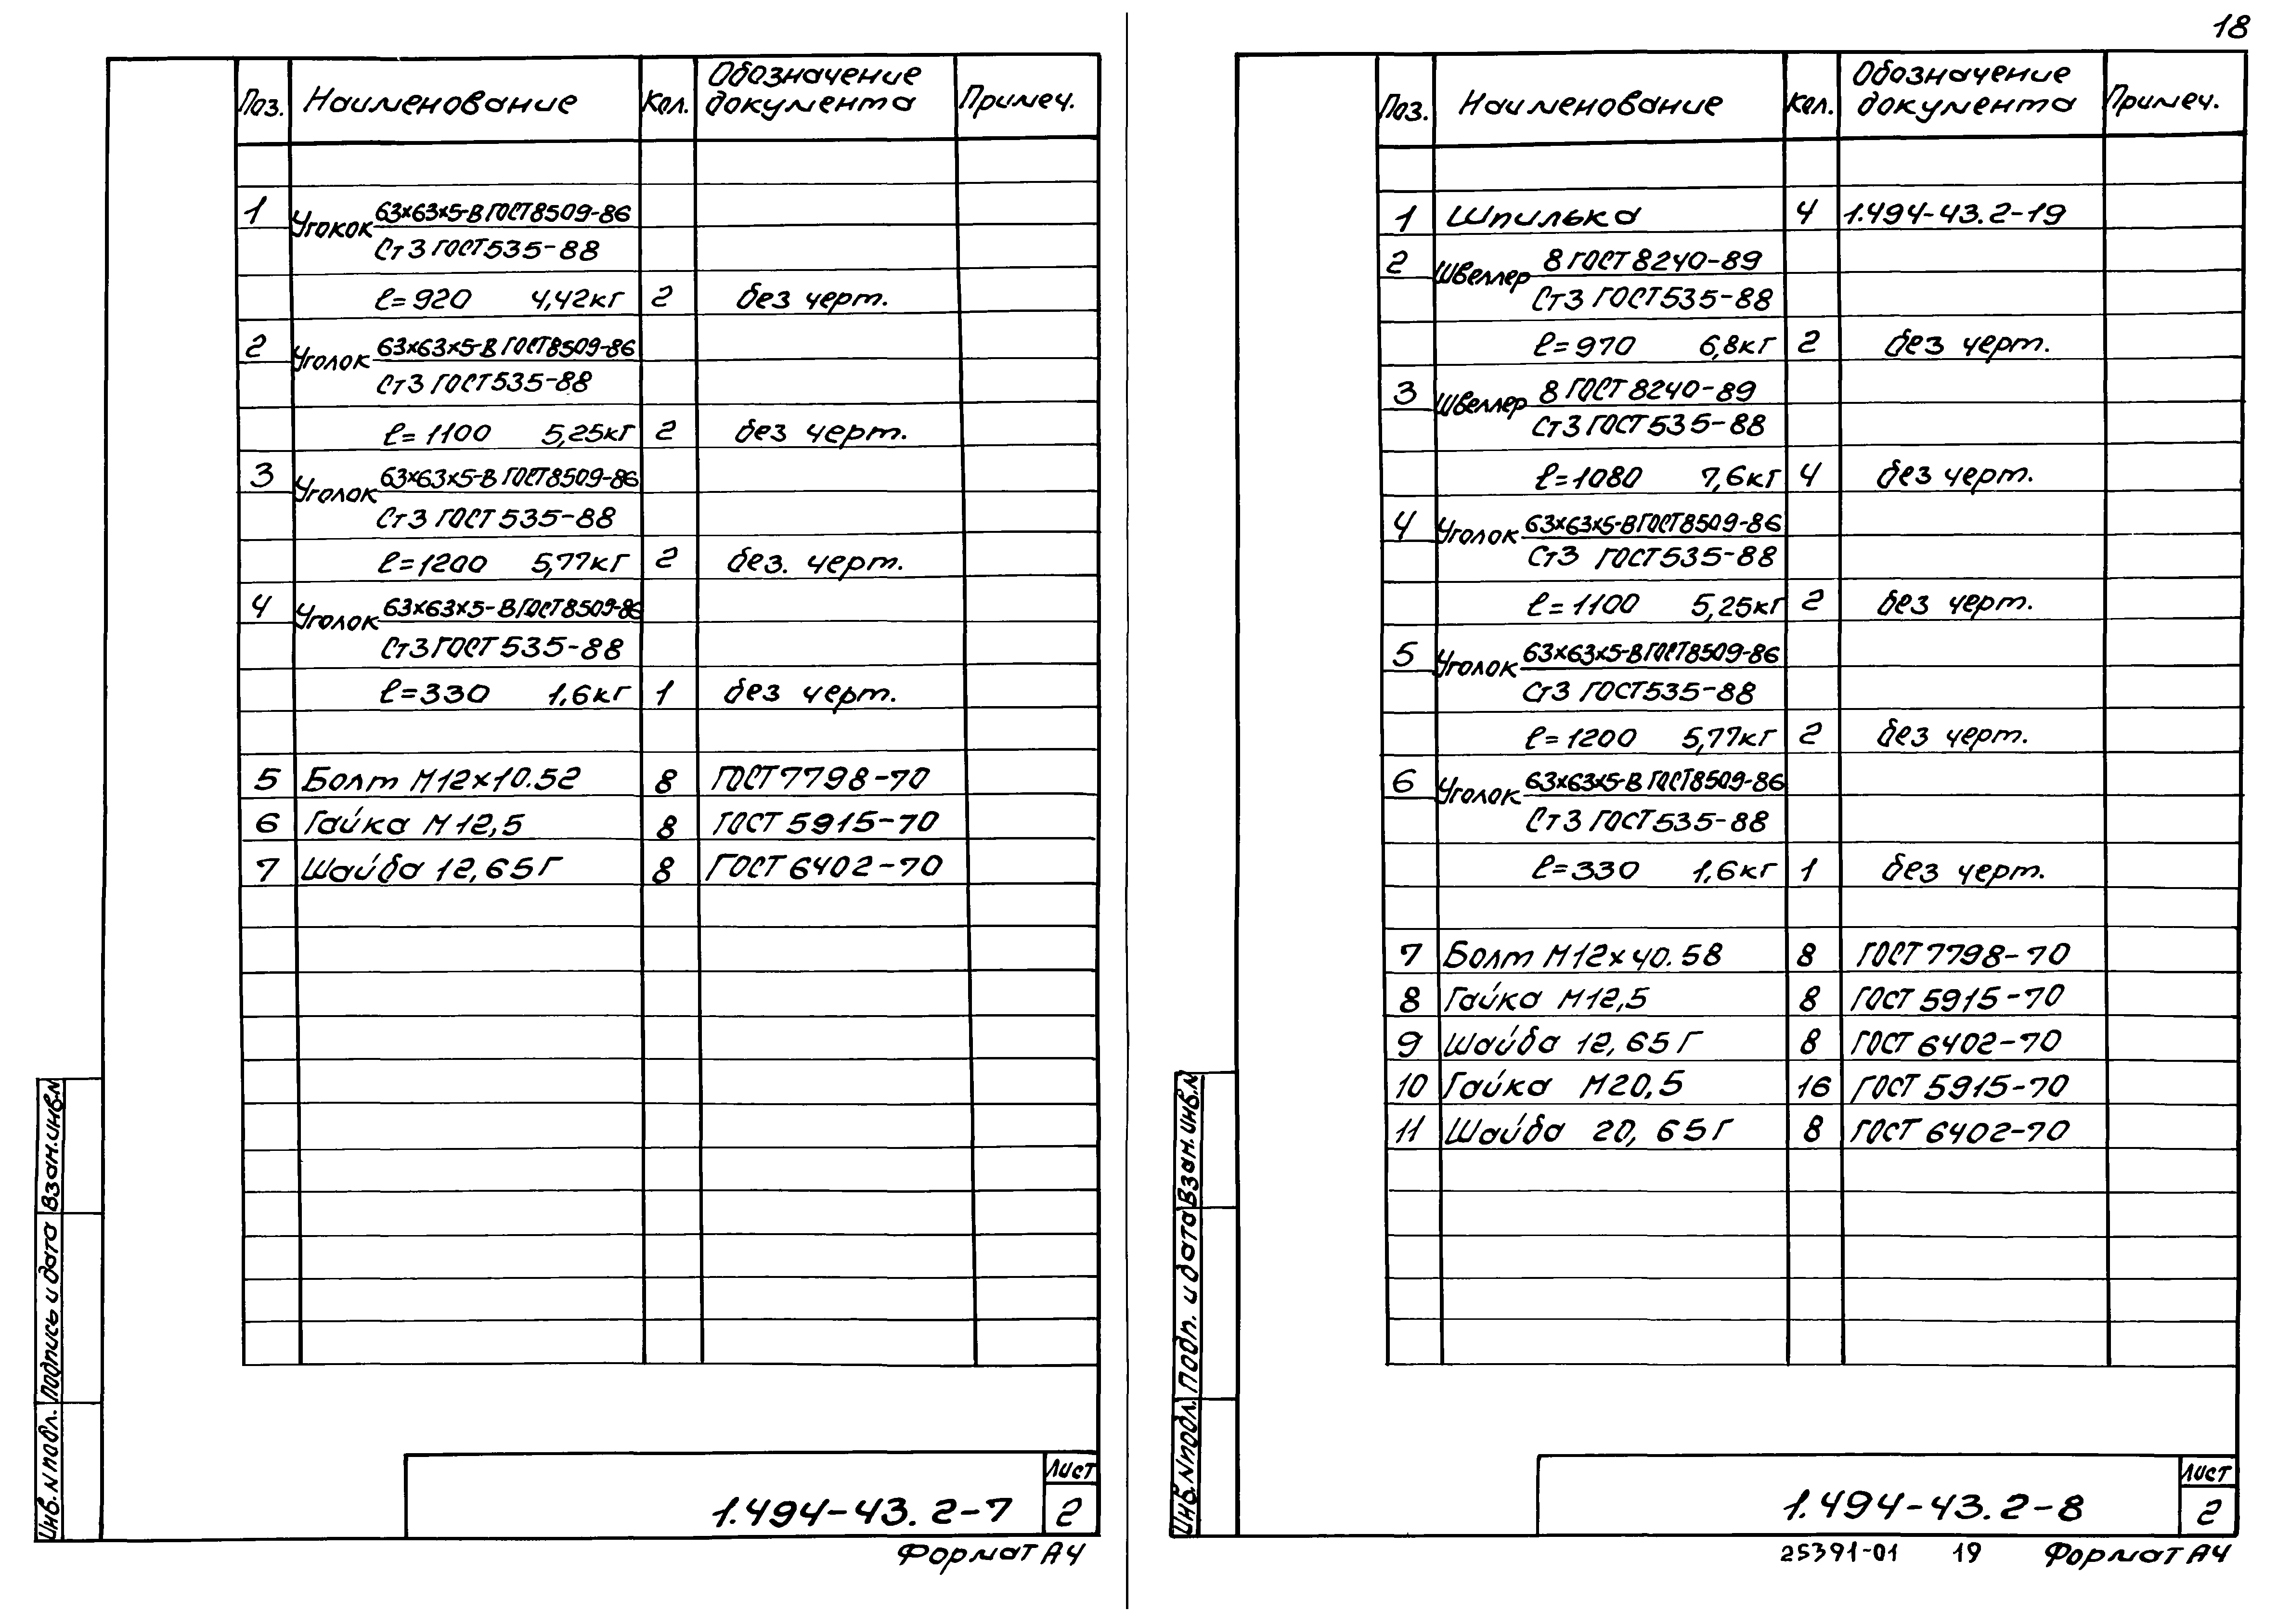 18
Поз. Наименование Кол. Обозначение документа Примеч.
1 Угокок 63×63×5-В ГОСТ 8509-86
Ст3 ГОСТ 535-88
ℓ=920 4,42кг 2 без черт.
2 Уголок 63×63×5-В ГОСТ 8509-86
Ст3 ГОСТ 535-88
ℓ=1100 5,25кг 2 без черт.
3 Уголок 63×63×5-В ГОСТ 8509-86
Ст3 ГОСТ 535-88
ℓ=1200 5,77кг 2 без. черт.
4 Уголок 63×63×5-В ГОСТ 8509-86
Ст3 ГОСТ 535-88
ℓ=330 1,6кг 1 без черт.
5 Болт М12×10.52 8 ГОСТ 7798-70
6 Гайка М12,5 8 ГОСТ 5915-70
7 Шайба 12,65Г 8 ГОСТ 6402-70
Инв. N подл. Подпись и дата Взам.инв.N
Лист
1.494-43.2-7 2
Формат А4
Поз. Наименование Кол. Обозначение документа Примеч.
1 Шпилька 4 1.494-43.2-19
2 Швеллер 8 ГОСТ 8240-89
Ст3 ГОСТ 535-88
ℓ=970 6,8кг 2 без черт.
3 Швеллер 8 ГОСТ 8240-89
Ст3 ГОСТ 535-88
ℓ=1080 7,6кг 4 без черт.
4 Уголок 63×63×5-В ГОСТ 8509-86
Ст3 ГОСТ 535-88
ℓ=1100 5,25кг 2 без черт.
5 Уголок 63×63×5-В ГОСТ 8509-86
Ст3 ГОСТ 535-88
ℓ=1200 5,77кг 2 без черт.
6 Уголок 63×63×5-В ГОСТ 8509-86
Ст3 ГОСТ 535-88
ℓ=330 1,6кг 1 без черт.
7 Болт М12×40.58 8 ГОСТ 7798-70
8 Гайка М12,5 8 ГОСТ 5915-70
9 Шайба 12,65Г 8 ГОСТ 6402-70
10 Гайка М20,5 16 ГОСТ 5915-70
11 Шайба 20, 65Г 8 ГОСТ 6402-70
Инв. N подл. Подп. и дата Взам.инв.N
Лист
1.494-43.2-8 2
25391-01 19 Формат А4